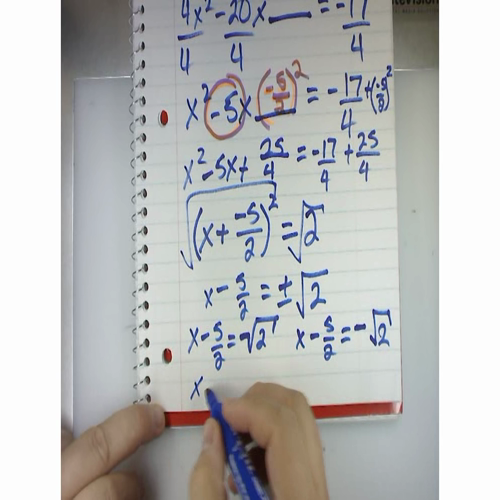 4x²/4 - 20/4 x ___ = -17/4
x² - 5x (-5/2)² = -17/4 + (-5/2)²
x² - 5x + 25/4 = -17/4 + 25/4
√(x + -5/2)² = √2
x - 5/2 = ± √2
x - 5/2 = -√2 x - 5/2 = -√2
x